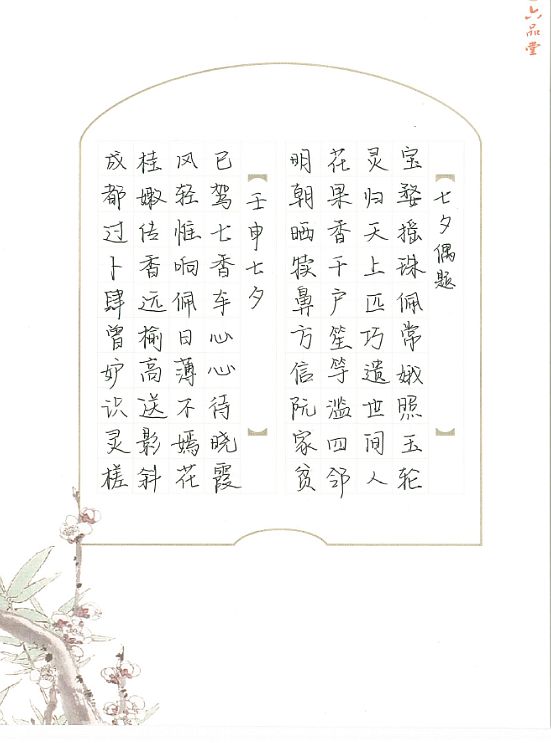 六品堂
七夕偶题
宝婺摇珠佩常娥照玉轮
灵归天上匹巧遗世间人
花果香千户笙竽滥四邻
明朝晒犊鼻方信阮家贫
壬申七夕
已驾七香车心心待晓霞
风轻惟响佩日薄不嫣花
桂嫩传香远榆高送影斜
成都过卜肆曾妒识灵槎